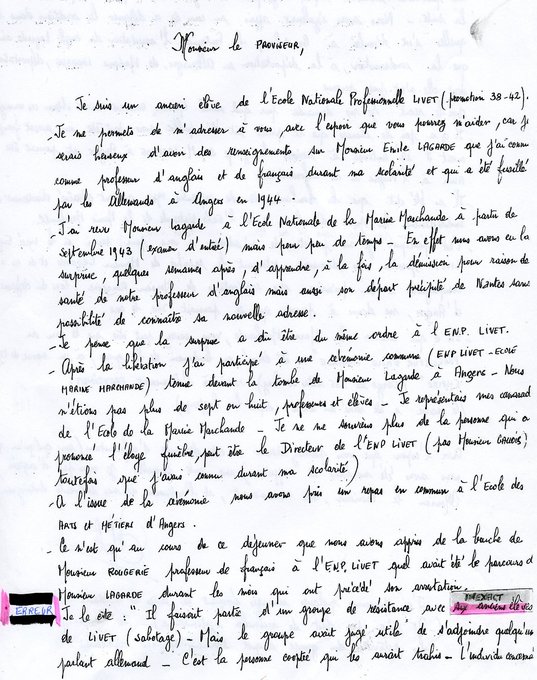 Monsieur le PROVISEUR,
Je suis un ancien élève de l'Ecole Nationale Professionnelle LIVET (promotion 38-42).
- Je me permets de m'adresser à vous avec l'espoir que vous pourrez m'aider, car je
serais heureux d'avoir des renseignements sur Monsieur Emile LAGARDE que j'ai connu
comme professeur d'anglais et de français durant ma scolarité et qui a été fusillé
par les Allemands à Angers en 1944.
- J'ai revu Monsieur Lagarde à l'Ecole Nationale de la Marine Marchande à partir de
septembre 1943 (examen d'entrée) mais pour peu de temps - En effet nous avons eu la
surprise, quelques semaines après, d'apprendre, à la fois, la démission pour raison de
santé de notre professeur d'anglais mais aussi son départ précipité de Nantes sans
possibilité de connaître sa nouvelle adresse.
- Je pense que la surprise a dû être du même ordre à l'E.N.P. LIVET.
- Après la libération j'ai participé à une cérémonie commune (ENP LIVET - ECOLE
MARINE MARCHANDE) tenue devant la tombe de Monsieur Lagarde à Angers - Nous
n'étions pas plus de sept ou huit, professeurs et élèves - Je représentais mes camarad
de l'Ecole de la Marine Marchande - Je ne me souviens plus de la personne qui a
prononcé l'éloge funèbre, peut être le Directeur de l'ENP LIVET (pas Monsieur
toutefois que j'avais connu durant ma scolarité)
- A l'issue de la cérémonie nous avons pris un repas en commun à l'Ecole des
ARTS et MÉTIERS d'Angers.
- Ce n'est qu'au cours de ce déjeuner que nous avons appris de la bouche de
Monsieur ROUGERIE professeur de français à l'E.N.P. LIVET quel avait été le parcours d
Monsieur LAGARDE durant les mois qui ont précédé son arrestation.
INEXACT
ERREUR
Je le cite : "Il faisait partie d'un groupe de résistance avec des anciens élèves
de LIVET (sabotage) - Mais le groupe avait jugé utile de s'adjoindre quelqu'un
parlant allemand - C'est la personne cooptée qui les aurait trahis - L'individu concerné